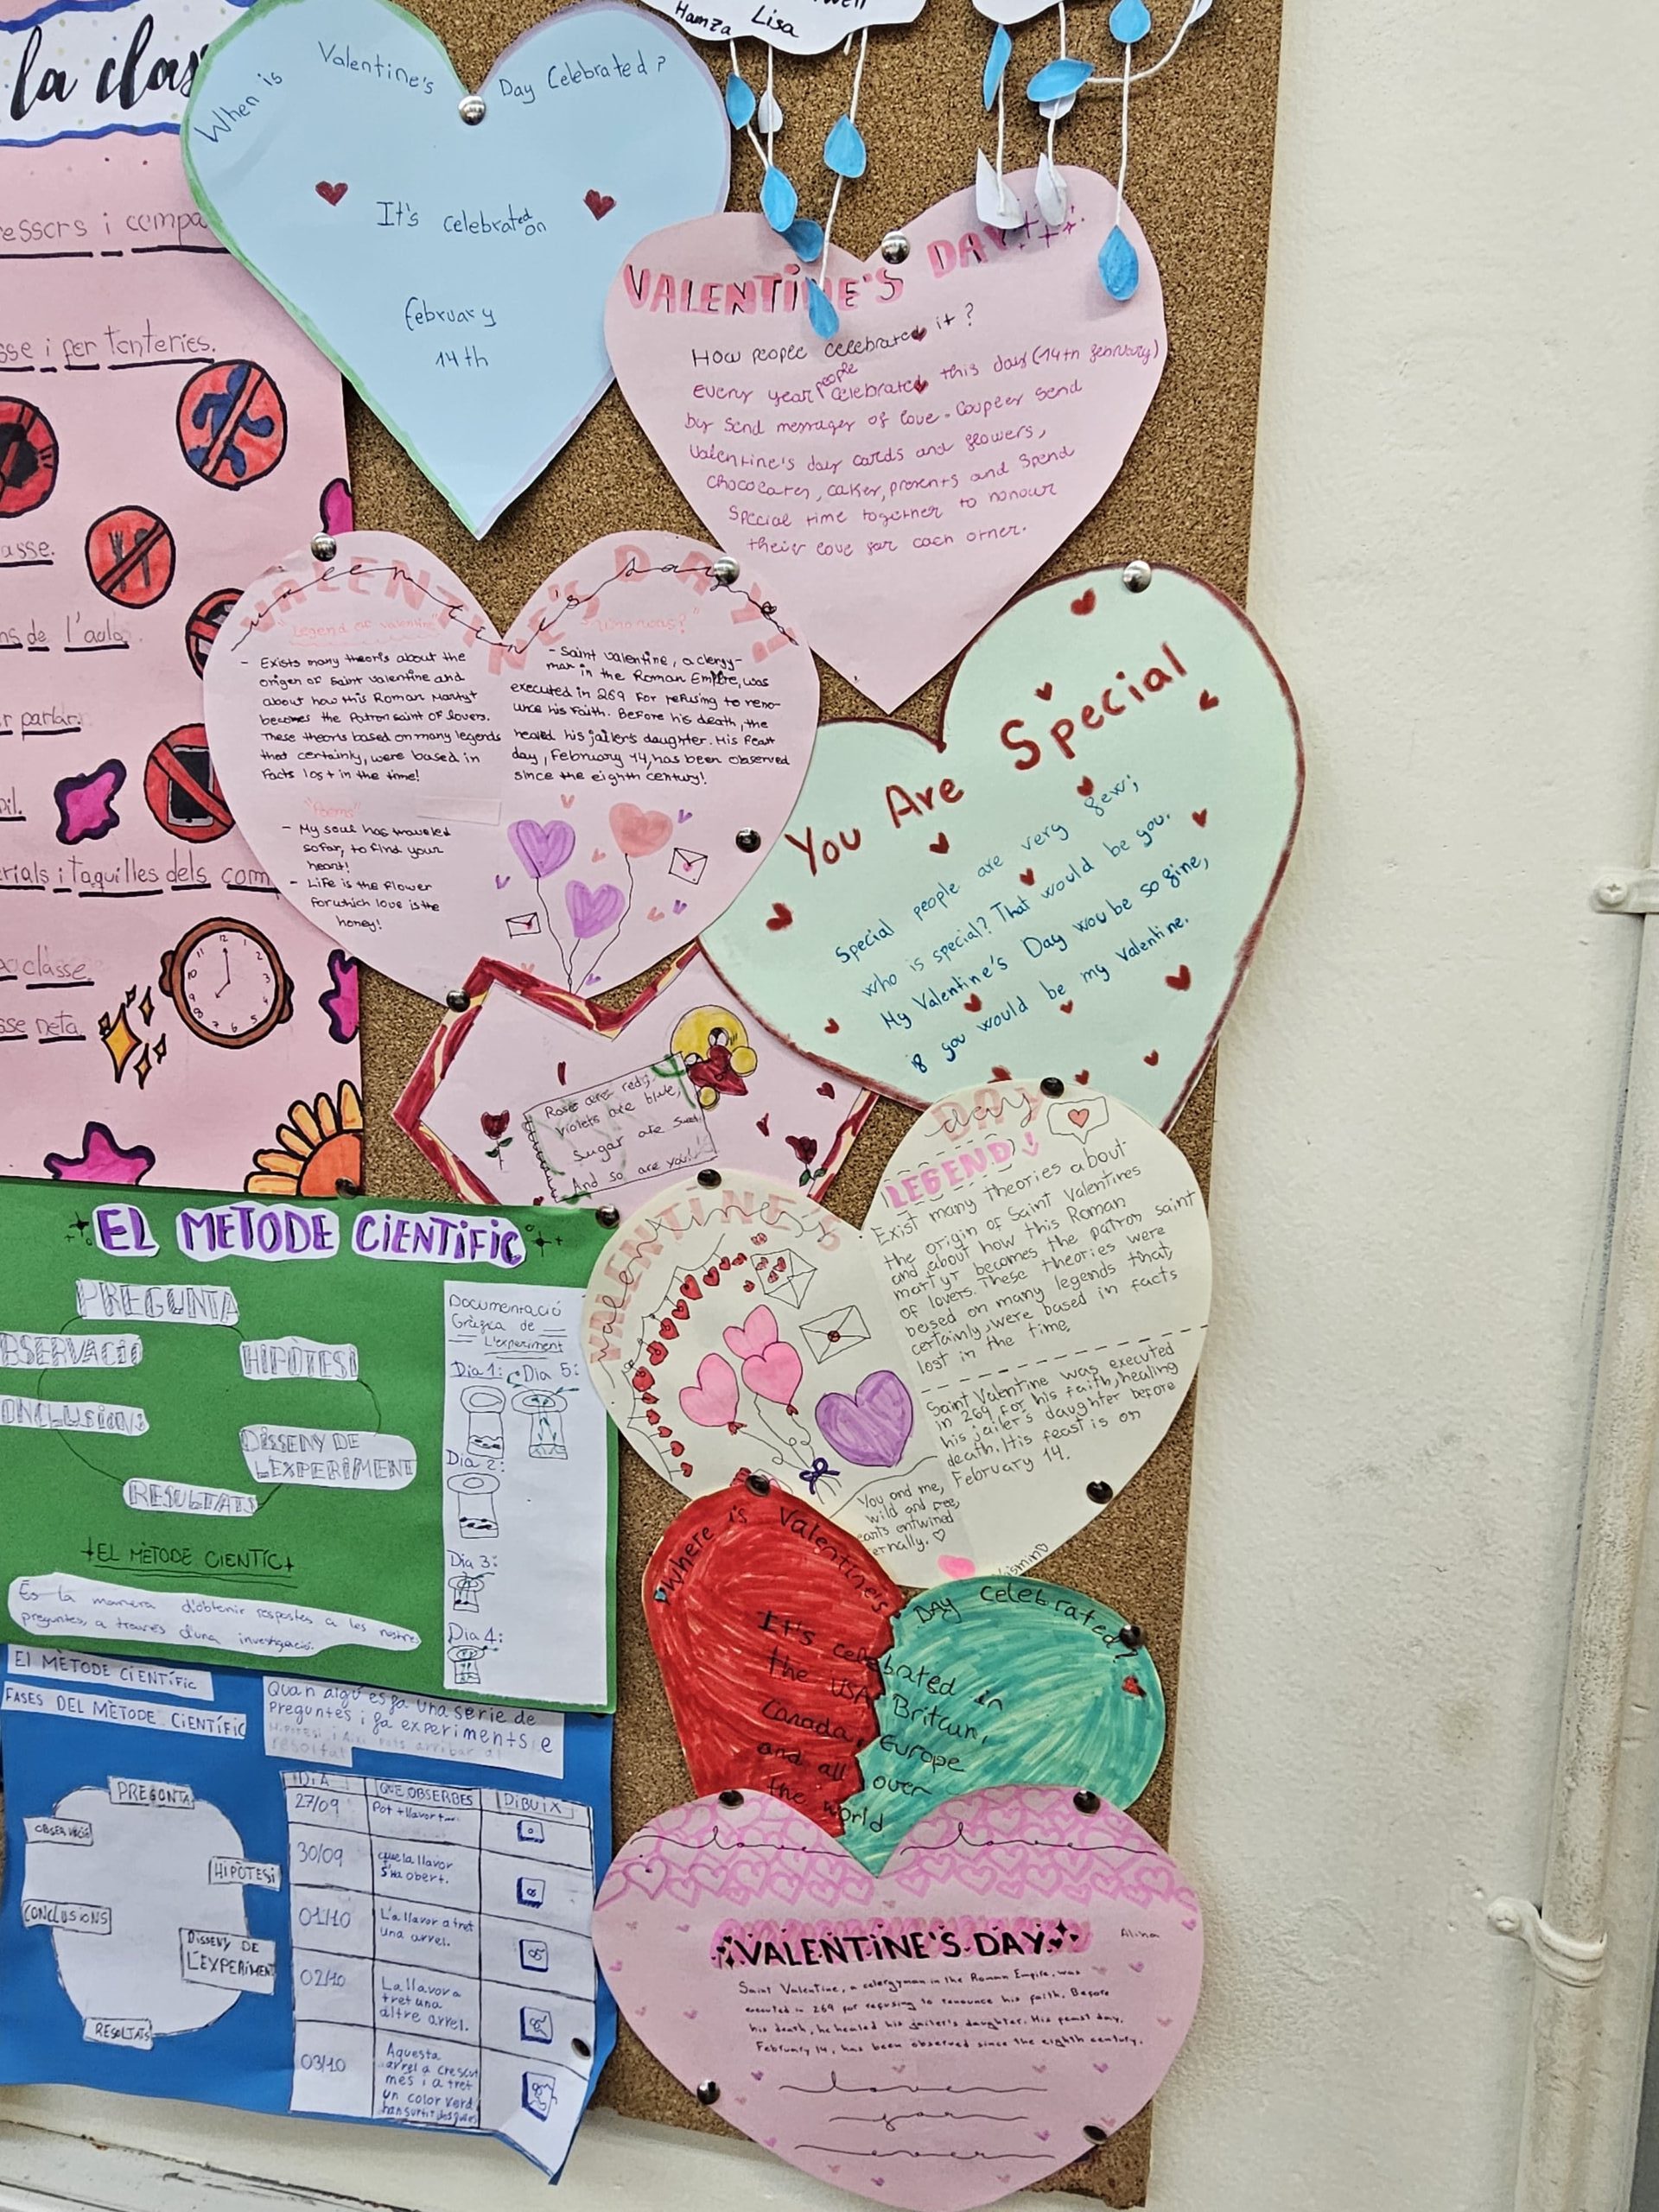 la clas
Hamza Lisa
When is Valentine's Day Celebrated?
It's celebrated on
february
14th
VALENTINE'S DAY
How people celebrated it?
every year people celebrated this day (14th february)
by send messages of love. Couples send
valentine's day cards and flowers,
chocolates, cakes, presents and spend
special time together to honour
their love for each other.
i compa
sse i fer tonteries.
asse.
de l'aula.
r parlar.
rials i taquilles dels com
classe.
sse neta.
VALENTINE'S DAY!
valentine's day
"Legend of Valentine"
- Exists many theoris about the
origen of Saint Valentine and
about how this Roman Martyt
becomes the Patron saint of lovers.
These theoris based on many legends
that certainly, were based in
Facts lost in the time!
"Who was?"
- Saint Valentine, a clergy-
man in the Roman Empire, was
executed in 269 for refusing to reno-
unce his Faith. Before his death, the
healed his jailer's daughter. His Feast
day, February 14, has been observed
since the eighth century!
"Poems"
- My soul has traveled
so far, to find your
heart!
- Life is the flower
for which love is the
honey!
You Are Special
Special people are very few;
who is special? That would be you.
My Valentine's Day woube be so fine,
if you would be my Valentine.
Roses are red,
violets are blue,
Sugar are sweet
And so are you!
VALENTINE'S DAY
valentine's day
LEGEND
Exist many theories about
the origin of Saint Valentines
and about how this Roman
martyr becomes the patron saint
of lovers. These theories were
besed on many legends that,
certainly, were based in facts
lost in the time.
Saint Valentine was executed
in 269 for his faith, healing
his jailer's daughter before
death. His feast is on
February 14.
You and me,
wild and free,
earts entwined
ernally.
EL METODE CIENTIFIC
PREGUNTA
BSERVACIÓ
HIPÒTESI
ONCLUSIONS
DISSENY DE
L'EXPERIMENT
RESULTATS
EL METODE CIENTIC
És la manera d'obtenir respostes a les nostres
preguntes, a través d'una investigació.
Documentació
Gràfica de
L'experiment
Dia 1: Dia 5:
Dia 2:
Dia 3:
Dia 4:
Where is Valentine's DAY celebrated?
It's celebrated in
the USA, Britain,
Canada, Europe
and all over
the world
El MÈTODE CIENTÍFIC
FASES DEL MÈTODE CIENTÍFIC
Quan algú es fa una sèrie de
Preguntes i fa experiments e
PREGUNTA
OBSERVACIÓ
HIPÒTESI
CONCLUSIONS
DISSENY DE
L'EXPERIMENT
RESULTATS
DIA QUE OBSERBES DIBUIX
27/09 Pot + llavor +
30/09 que la llavor
s'ha obert.
01/10 La llavor a tret
una arrel.
02/10 La llavor a
tret una
altre arrel.
03/10 Aquesta
arrel a crescut
més i a tret
un color verd,
love love
VALENTINE'S DAY
Alina
Saint Valentine, a celergyman in the Roman Empire, was
executed in 269 for refusing to renounce his faith. Before
his death, he healed his jailer's daughter. His feast day,
February 14, has been observed since the eighth century.
love
for
ever